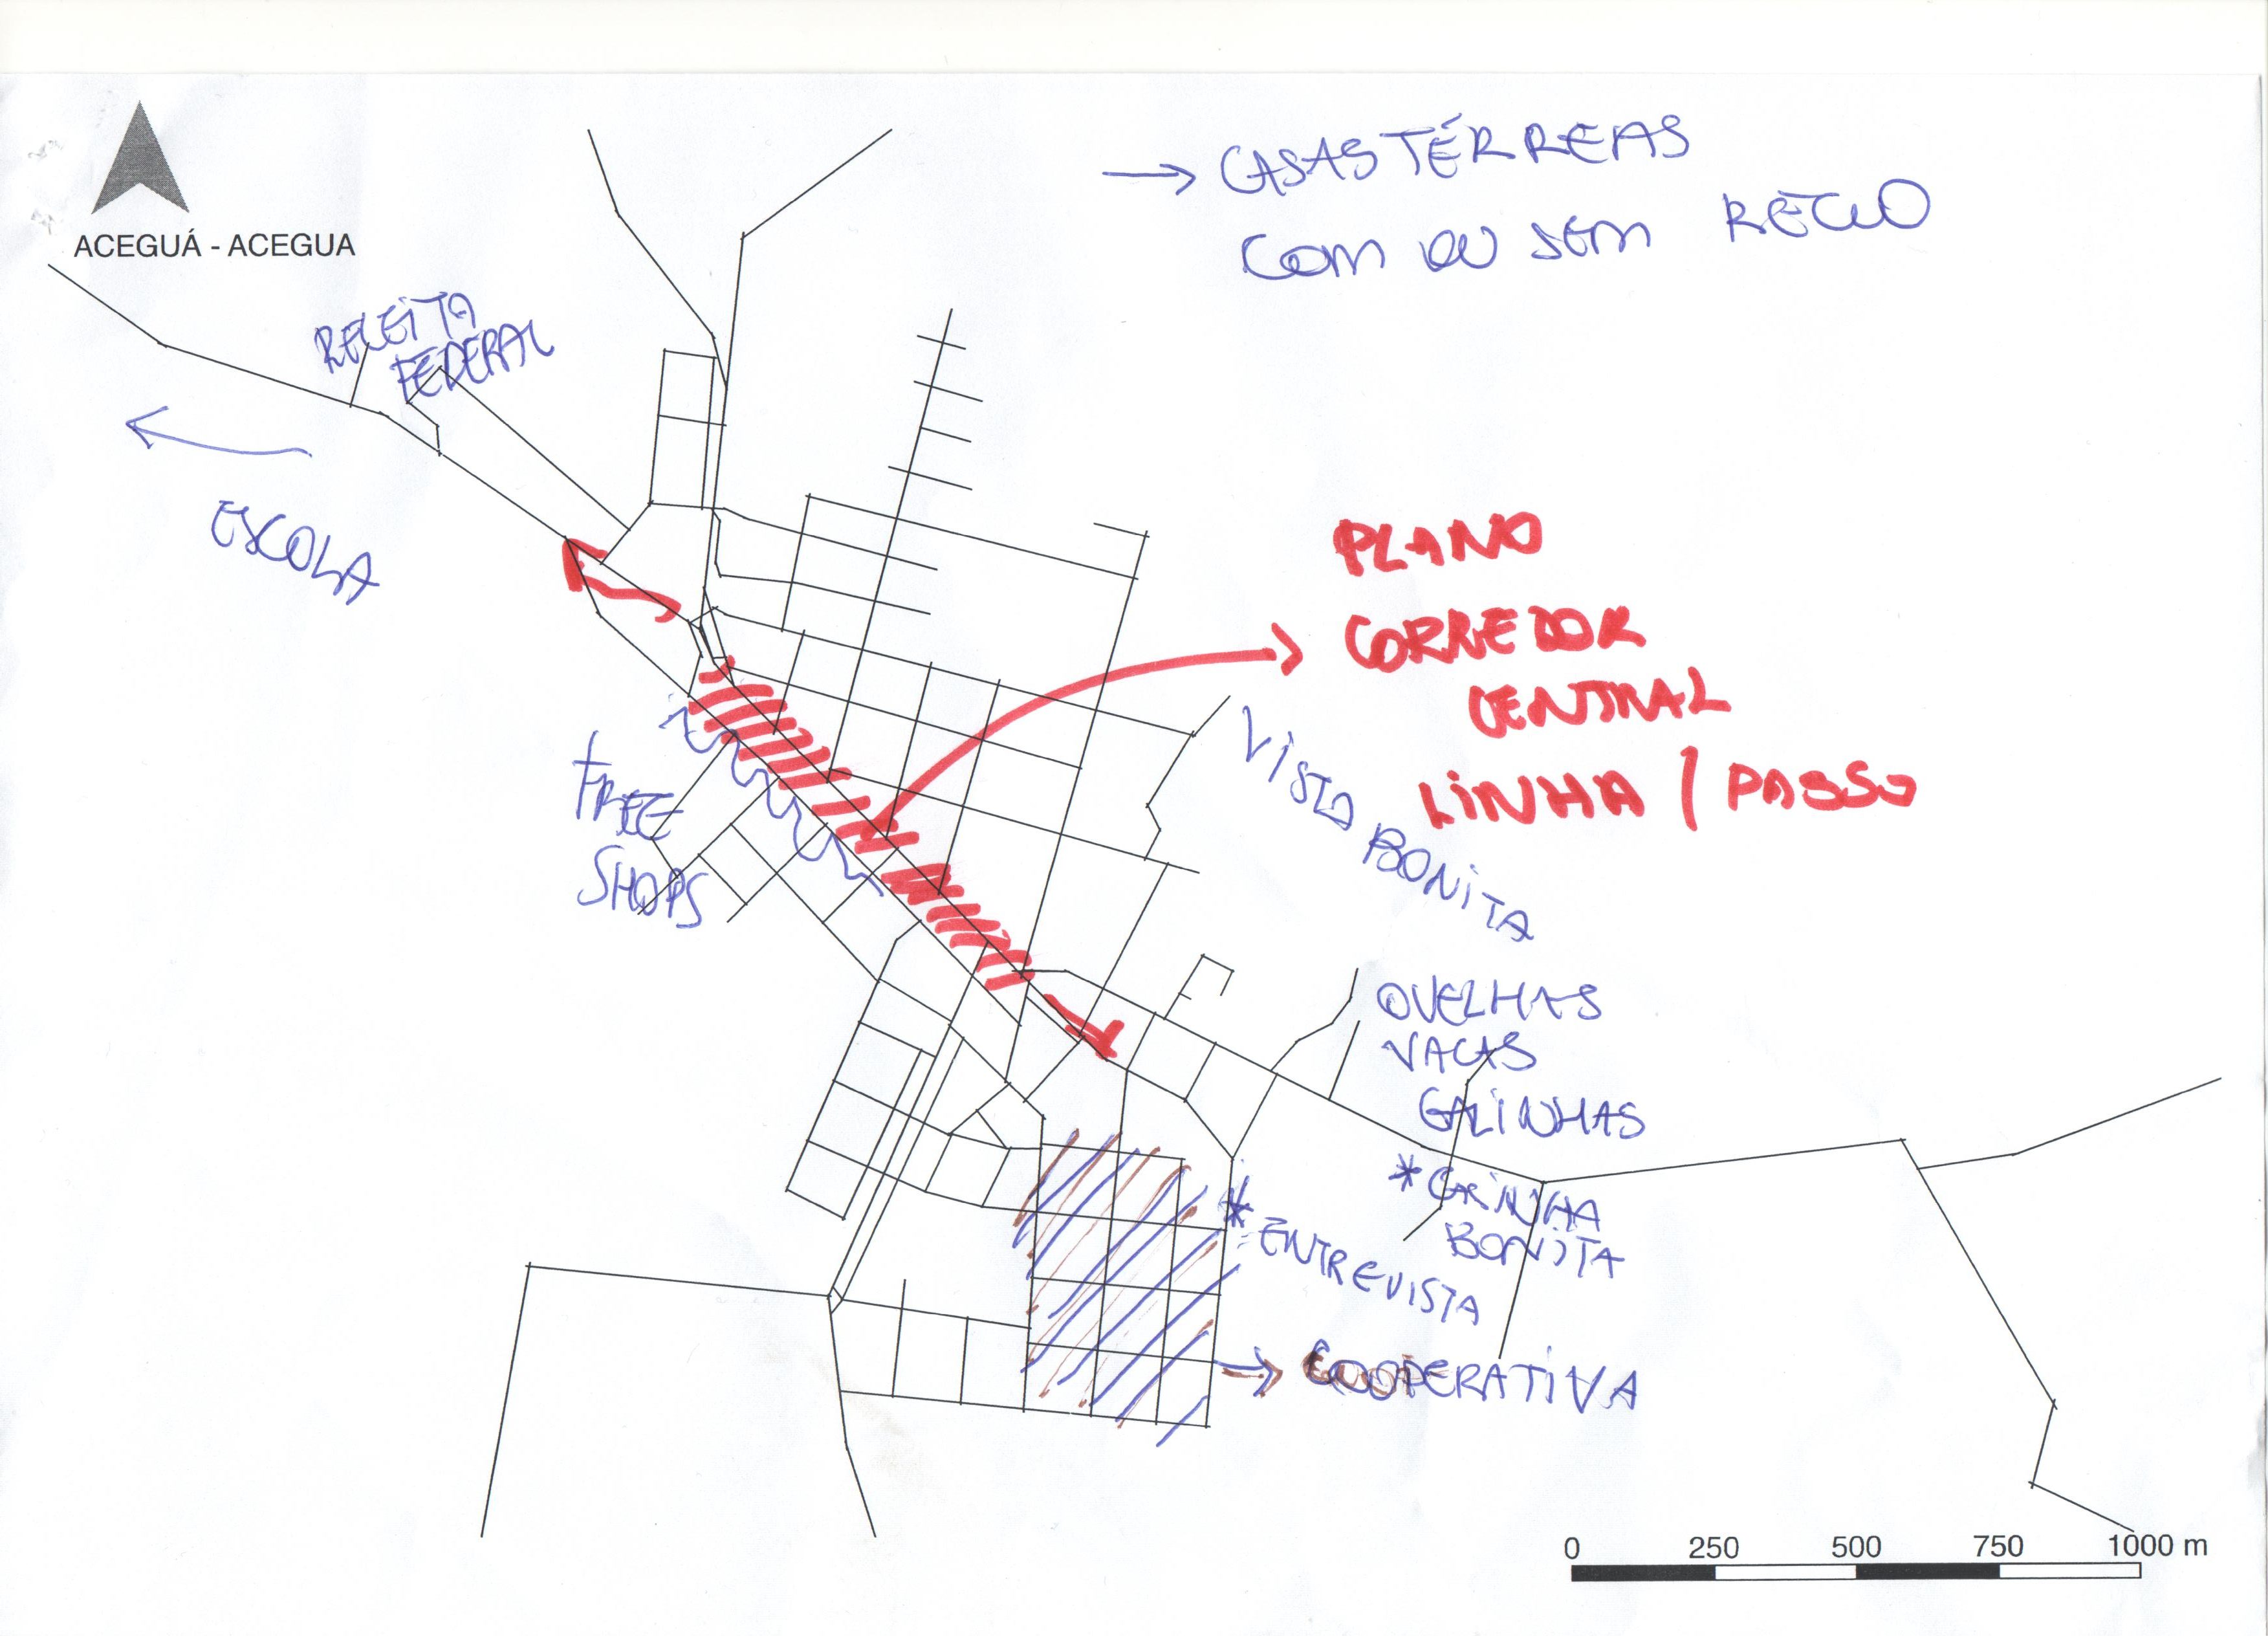 → CASAS TÉRREAS
COM OU SEM RECUO
ACEGUÁ - ACEGUA
RECEITA
FEDERAL
ESCOLA
PLANO
CORREDOR
CENTRAL
LINHA / PASSO
FREE
SHOPS
VISTA BONITA
OVELHAS
VACAS
GALINHAS
* CASINHA
BONITA
* ENTREVISTA
→ COOPERATIVA
0 250 500 750 1000 m